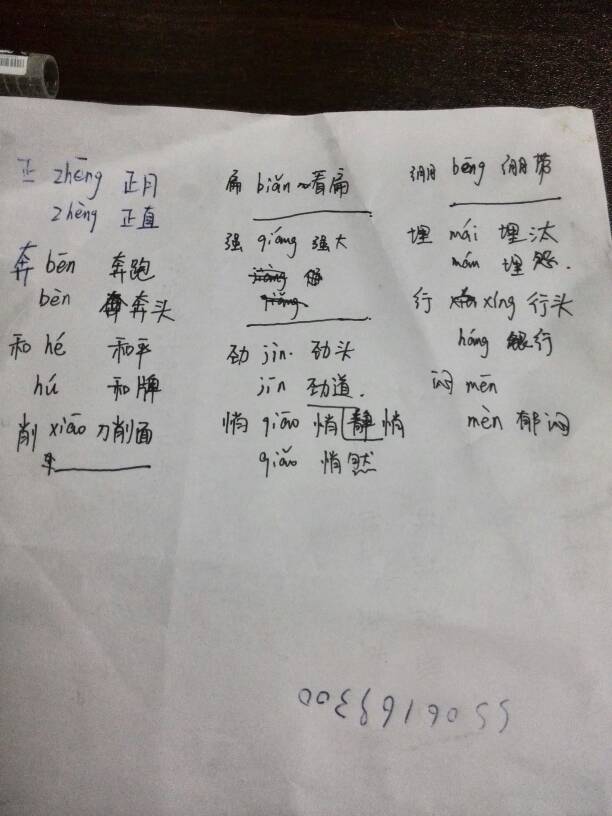 正 zhēng 正月
zhèng 正直
奔 bēn 奔跑
bèn 奔头
和 hé 和平
hú 和牌
削 xiāo 刀削面
扁 biǎn ~看扁
强 qiáng 强大
劲 jìn. 劲头
jīn 劲道.
悄 qiāo 悄静悄
qiǎo 悄然
绷 bēng 绷带
埋 mái 埋汰
mán 埋怨.
行 xíng 行头
háng 银行
闷 mēn
mèn 郁闷